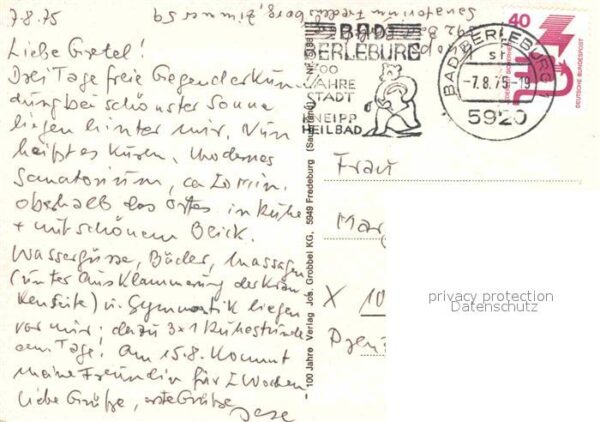 7.8.75
Sanatorium Fredeburg, Zimmer 59
592 Bad
Liebe Gretel!
Drei Tage freie Gegenderkun-
dung bei schönster Sonne
liegen hinter mir. Nun
heißt es Kuren. Modernes
Sanatorium, ca 20 min.
oberhalb des Ortes in Ruhe
+ mit schönem Blick.
Wassergüsse, Bäder, Massagen
(unter Ausklammerung der Kran-
kenseite) u. Gymnastik liegen
vor mir; dazu 3x1 Ruhestunde
am Tage! Am 15.8. kommt
meine Freundin für 2 Wochen
Liebe Grüße, erste Grüße
BAD
BERLEBURG
JAHRE
STADT
KNEIPP
HEILBAD
BAD BERLEBURG
-7.8.75-19
5920
40
DEUTSCHE BUNDESPOST
- 100 Jahre Verlag Jos. Grobbel KG, 5949 Fredeburg (Sauerland)
Frau
X 10
privacy protection
Datenschutz